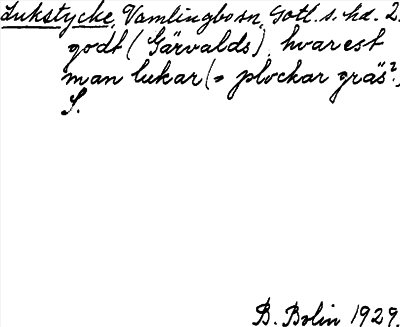 Lukstycke, Vamlingbosn, Gotl. s. hd. 2.
godt (Gärvalds), hvarest
man lukar (= plockar gräs?)
S.
B. Bolin 1929.